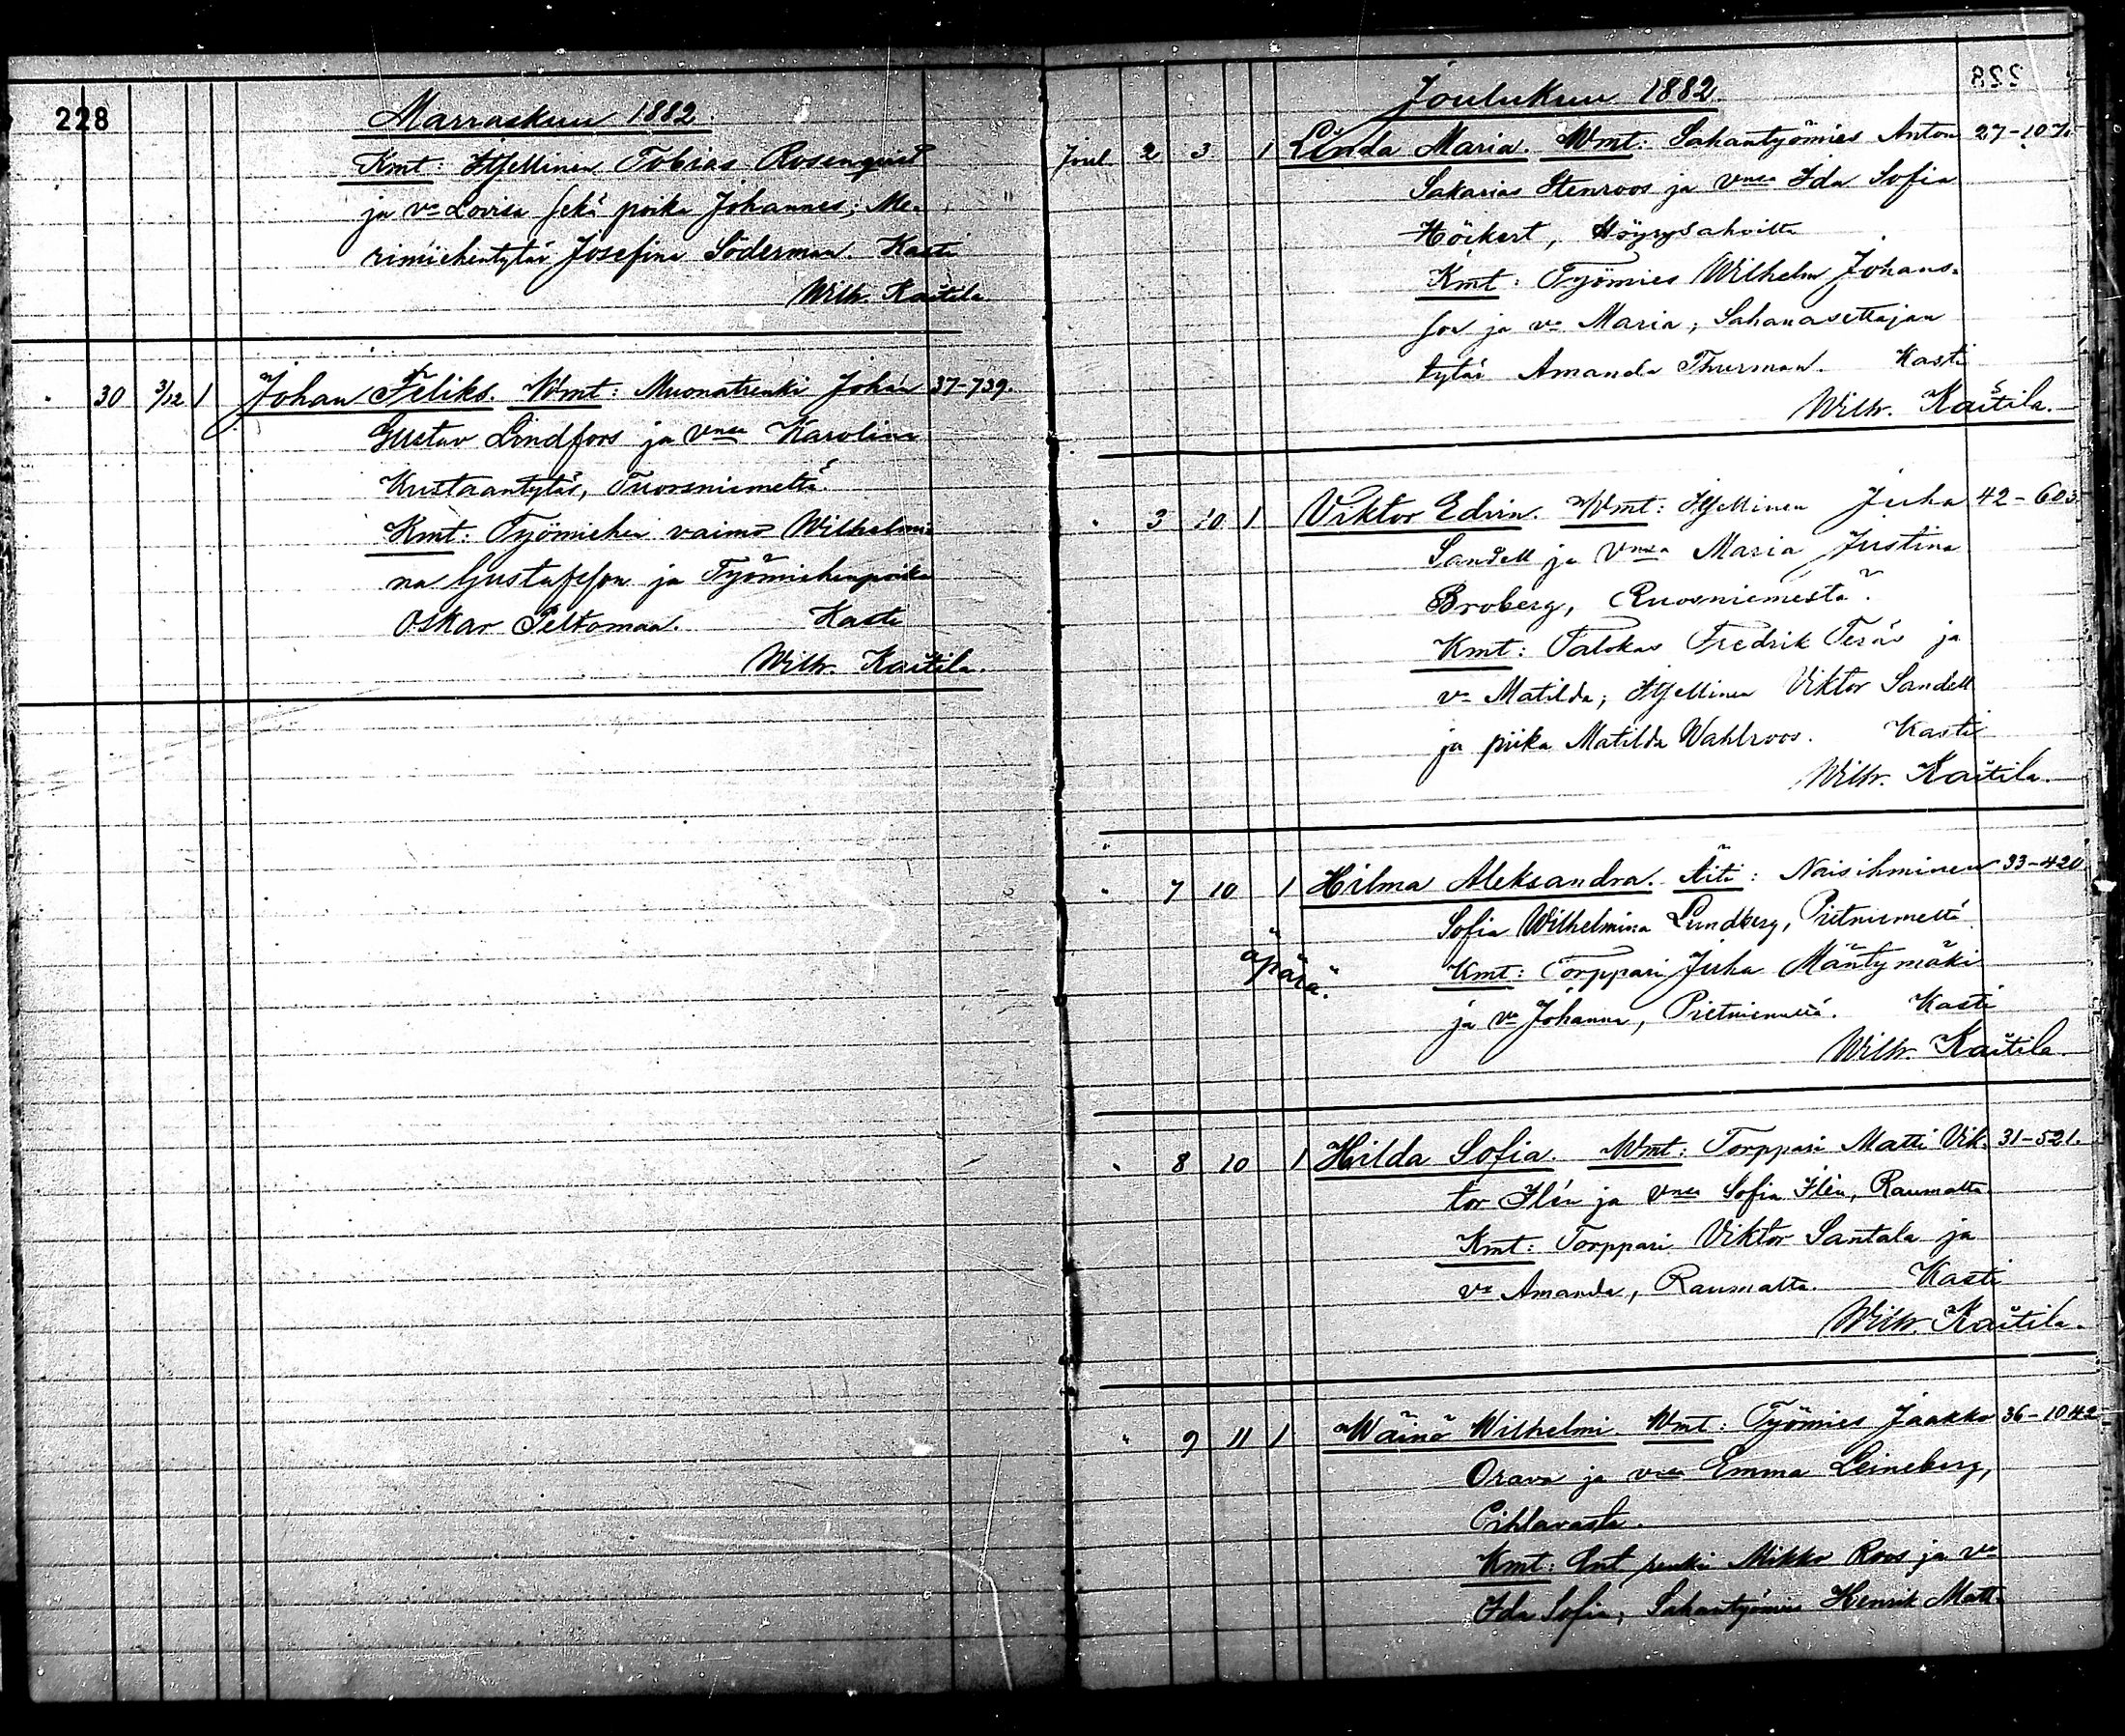 228
Marraskuu 1882.
Kmt: Itsellinen Tobias Rosenqvist
ja vo Lovisa sekä poika Johannes; Me-
rimiehentytär Josefina Söderman. Kasti
Wilh. Kaitila
" 30 3/12 1 Johan Feliks. Wmt: Muonatrenki Johan 37-739.
Gustav Lindfors ja vnsa Karolina
Kustaantytär,
Kmt: Työmiehen vaimo Wilhelmi-
na Gustafsson ja Työmiehenpoika
Oskar Peltomaa. Kasti
Wilh. Kaitila.
228
Joulukuu 1882.
Joul. 2 3 1 Linda Maria. Wmt: Sahantyömies Anton 27-107.
Sakarias Stenroos ja vnsa Ida Sofia
Höckert, Höyrysahoilta
Kmt: Työmies Wilhelm Johans-
son ja vo Maria; Sahanasettajan
tytär Amanda Thurman. Kasti
Wilh. Kaitila.
" 3 10 1 Viktor Edvin. Wmt: Itsellinen Juha 42-603.
Sandell ja vnsa Maria Justina
Broberg, Ruosniemestä.
Kmt: Talokas Fredrik Teräs ja
vo Matilda; Itsellinen Viktor Sandell
ja piika Matilda Wahlroos. Kasti
Wilh. Kaitila.
" 7 10 1 Hilma Aleksandra. Äiti: Naisihminen 33-420.
Sofia Wilhelmina Lundberg, Pietniemeltä.
äpärä.
Kmt: Torppari Juha Mäntymäki
ja vo Johanna, Pietniemeltä. Kasti
Wilh. Kaitila.
" 8 10 1 Hilda Sofia. Wmt: Torppari Matti Vik- 31-521.
tor Ilén ja vnsa Sofia Ilén, Raumalta.
Kmt: Torppari Viktor Santala ja
vo Amanda, Raumalta. Kasti
Wilh. Kaitila.
" 9 11 1 Wäinö Wilhelmi. Wmt: Työmies Jaakko 36-1042
Orava ja vnsa Emma Leineberg,
Pihlavasta.
Kmt: Ent. renki Mikko Roos ja vo
Ida Sofia; Sahantyömies Henrik Matt-